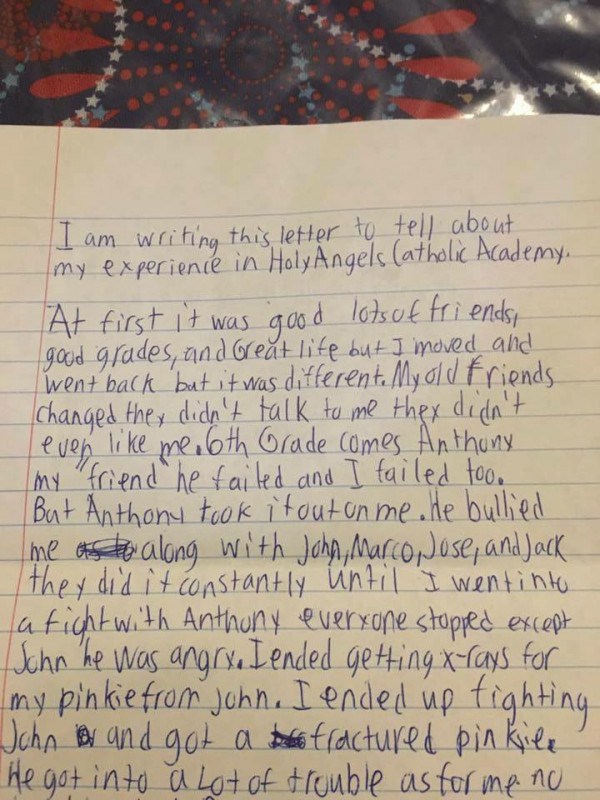 I am writing this letter to tell about
my experience in Holy Angels Catholic Academy.
At first it was good lots of friends,
good grades, and Great life but I moved and
went back but it was different. My old friends
changed they didn't talk to me they didn't
even like me. 6th Grade comes Anthony
my "friend" he failed and I failed too.
But Anthony took it out on me. He bullied
me along with John, Marco, Jose, and Jack
they did it constantly until I went into
a fight with Anthony everyone stopped except
John he was angry. I ended getting x-rays for
my pinkie from john. I ended up fighting
John and got a fractured pinkie.
He got into a Lot of trouble as for me no